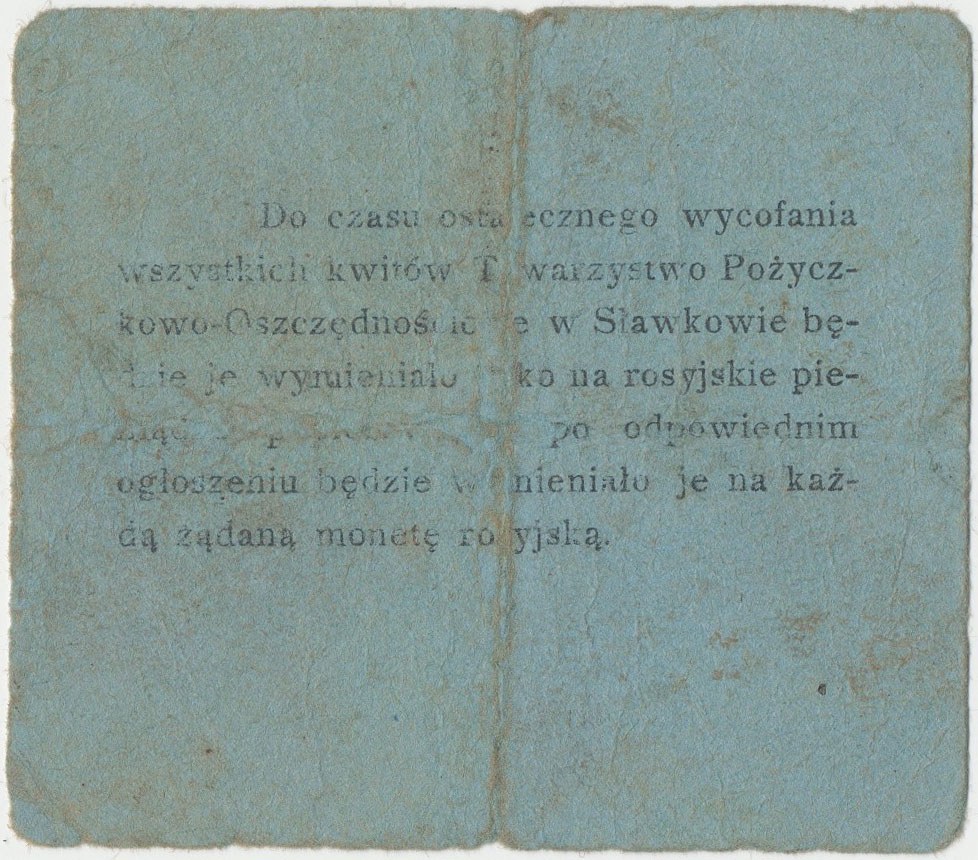 Do czasu ostatecznego wycofania
wszystkich kwitów Towarzystwo Pożycz-
kowo-Oszczędnościowe w Sławkowie bę-
dzie je wymieniało tylko na rosyjskie pie-
po odpowiednim
ogłoszeniu będzie wymieniało je na każ-
dą żądaną monetę rosyjską.